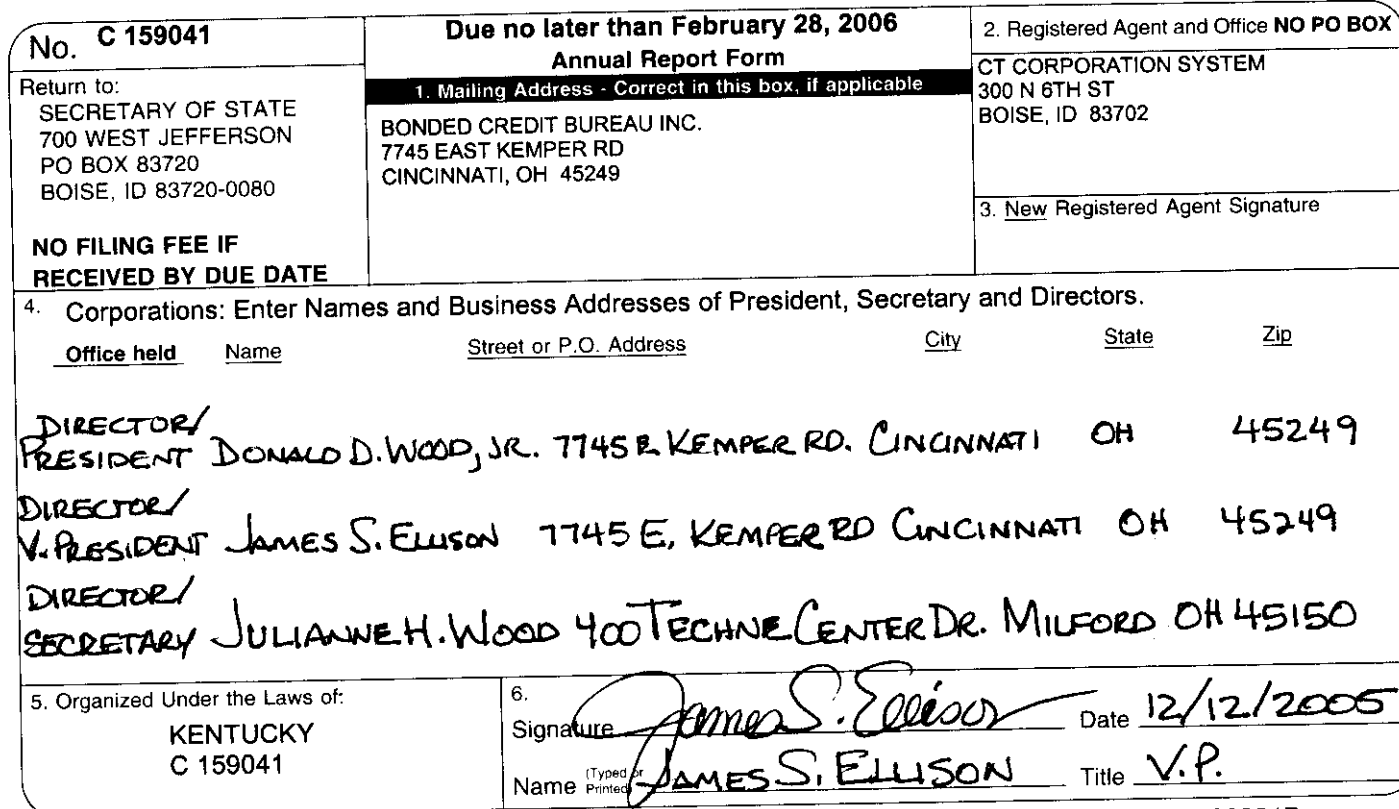 No. C 159041
Return to:
SECRETARY OF STATE
700 WEST JEFFERSON
PO BOX 83720
BOISE, ID 83720-0080
NO FILING FEE IF
RECEIVED BY DUE DATE
Due no later than February 28, 2006
Annual Report Form
1. Mailing Address - Correct in this box, if applicable
BONDED CREDIT BUREAU INC.
7745 EAST KEMPER RD
CINCINNATI, OH 45249
2. Registered Agent and Office NO PO BOX
CT CORPORATION SYSTEM
300 N 6TH ST
BOISE, ID 83702
3. New Registered Agent Signature
4. Corporations: Enter Names and Business Addresses of President, Secretary and Directors.
Office held Name Street or P.O. Address City State Zip
DIRECTOR/
PRESIDENT DONALD D. WOOD, JR. 7745 E. KEMPER RD. CINCINNATI OH 45249
DIRECTOR/
V. PRESIDENT JAMES S. ELLISON 7745 E, KEMPER RD CINCINNATI OH 45249
DIRECTOR/
SECRETARY JULIANNE H. WOOD 400 TECHNE CENTER DR. MILFORD OH 45150
5. Organized Under the Laws of:
KENTUCKY
C 159041
6.
Signature James S. Ellison Date 12/12/2005
Name (Typed or Printed) JAMES S. ELLISON Title V.P.